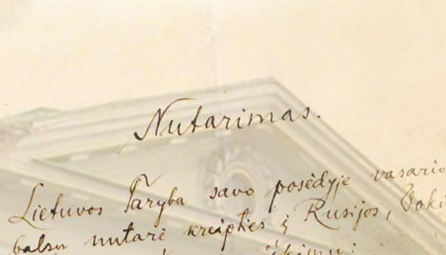 Nutarimas.
Lietuvos Taryba savo posėdyje vasario
balsu nutarė kreipties į Rusijos, Voki